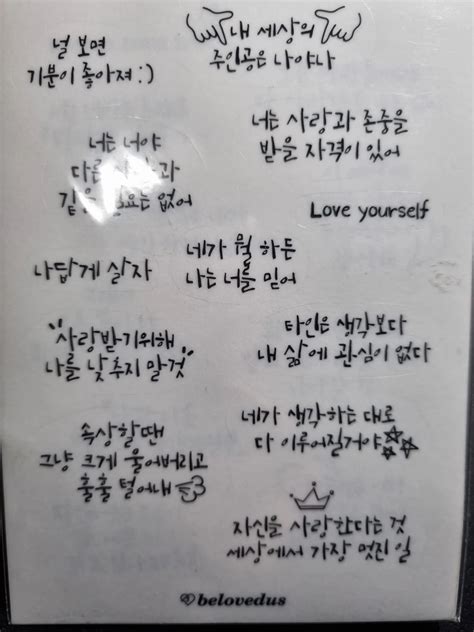 널 보면
기분이 좋아져 :)
내 세상의
주인공은 나야나
너는 사랑과 존중을
받을 자격이 있어
너는 너야
다른 사람과
같을 필요는 없어
Love yourself
네가 뭘 하든
나는 너를 믿어
나답게 살자
"사랑받기위해
나를 낮추지 말것"
타인은 생각보다
내 삶에 관심이 없다
네가 생각하는 대로
다 이루어질거야
속상할땐
그냥 크게 울어버리고
훌훌 털어내
자신을 사랑한다는 것
세상에서 가장 멋진 일
belovedus